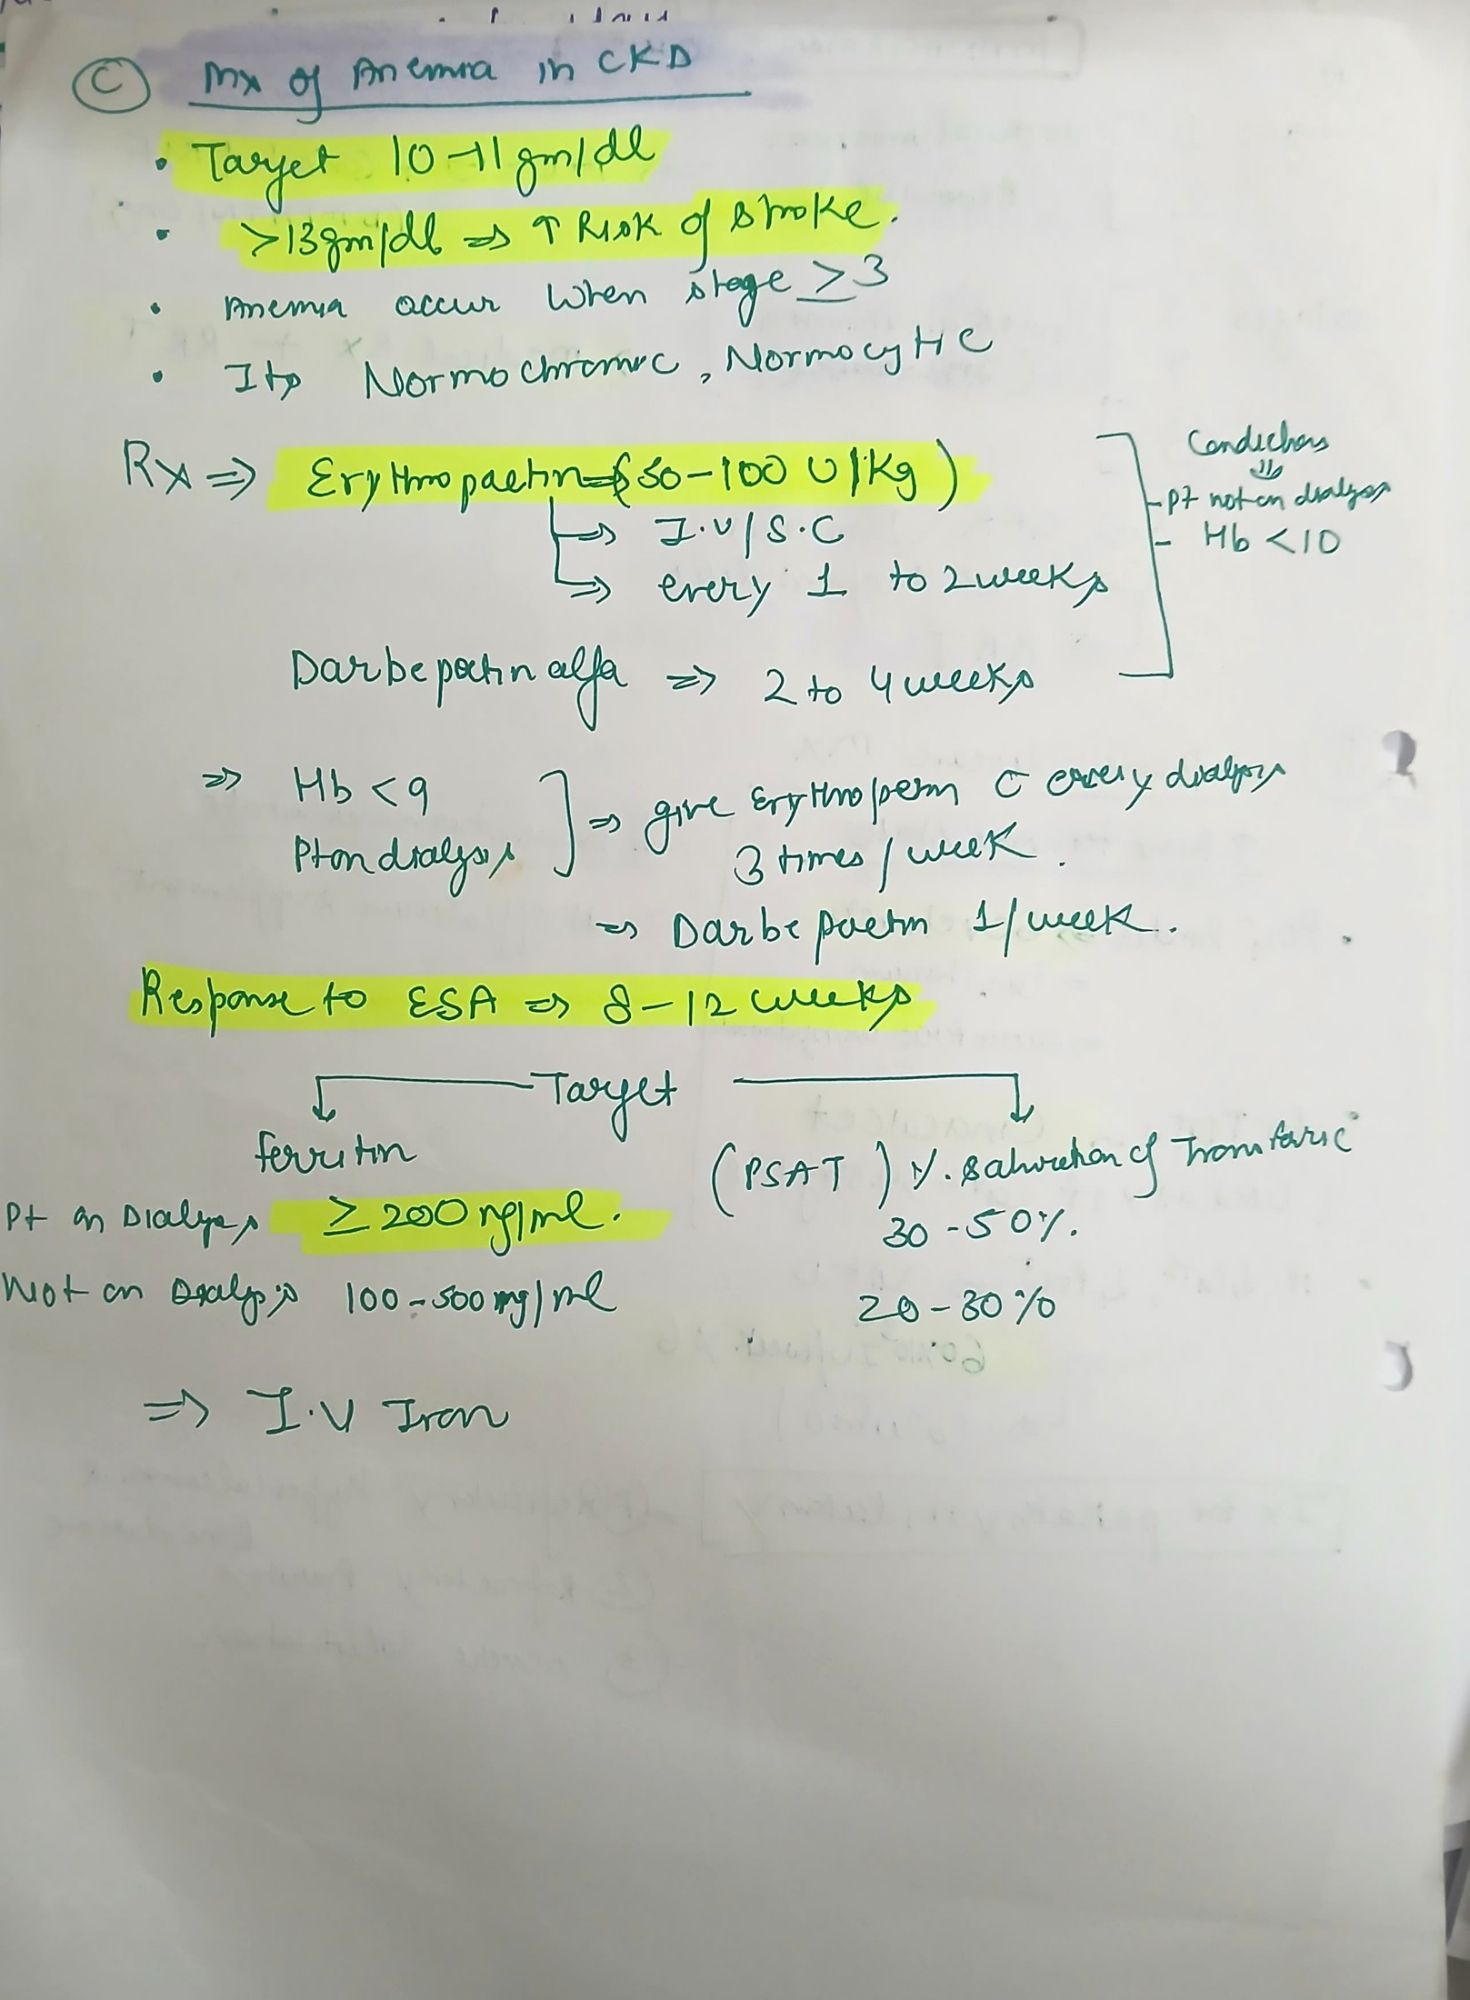 C Mx of Anemia in CKD
• Target 10-11 gm/dl
• >13gm/dl ⇒ ↑ Risk of stroke.
• Anemia occur when stage ≥3
• Its Normochromic, Normocytic
Rx ⇒ Erythropoetin (50-100 U/Kg)
→ I.V/S.C
⇒ every 1 to 2 weeks
Darbepoetin alfa ⇒ 2 to 4 weeks
Conditions
⇓
- Pt not on dialysis
- Hb <10
⇒ Hb <9
Pt on dialysis
⇒ give Erythropoetin c every dialysis
3 times/week.
⇒ Darbepoetin 1/week.
Response to ESA ⇒ 8-12 weeks
Target
ferritin
(PSAT) %. Saturation of Transferric
Pt on Dialysis ≥ 200 ng/ml. 30-50%.
Not on Dialysis 100-500 mg/ml 20-30%
⇒ I.V Iron